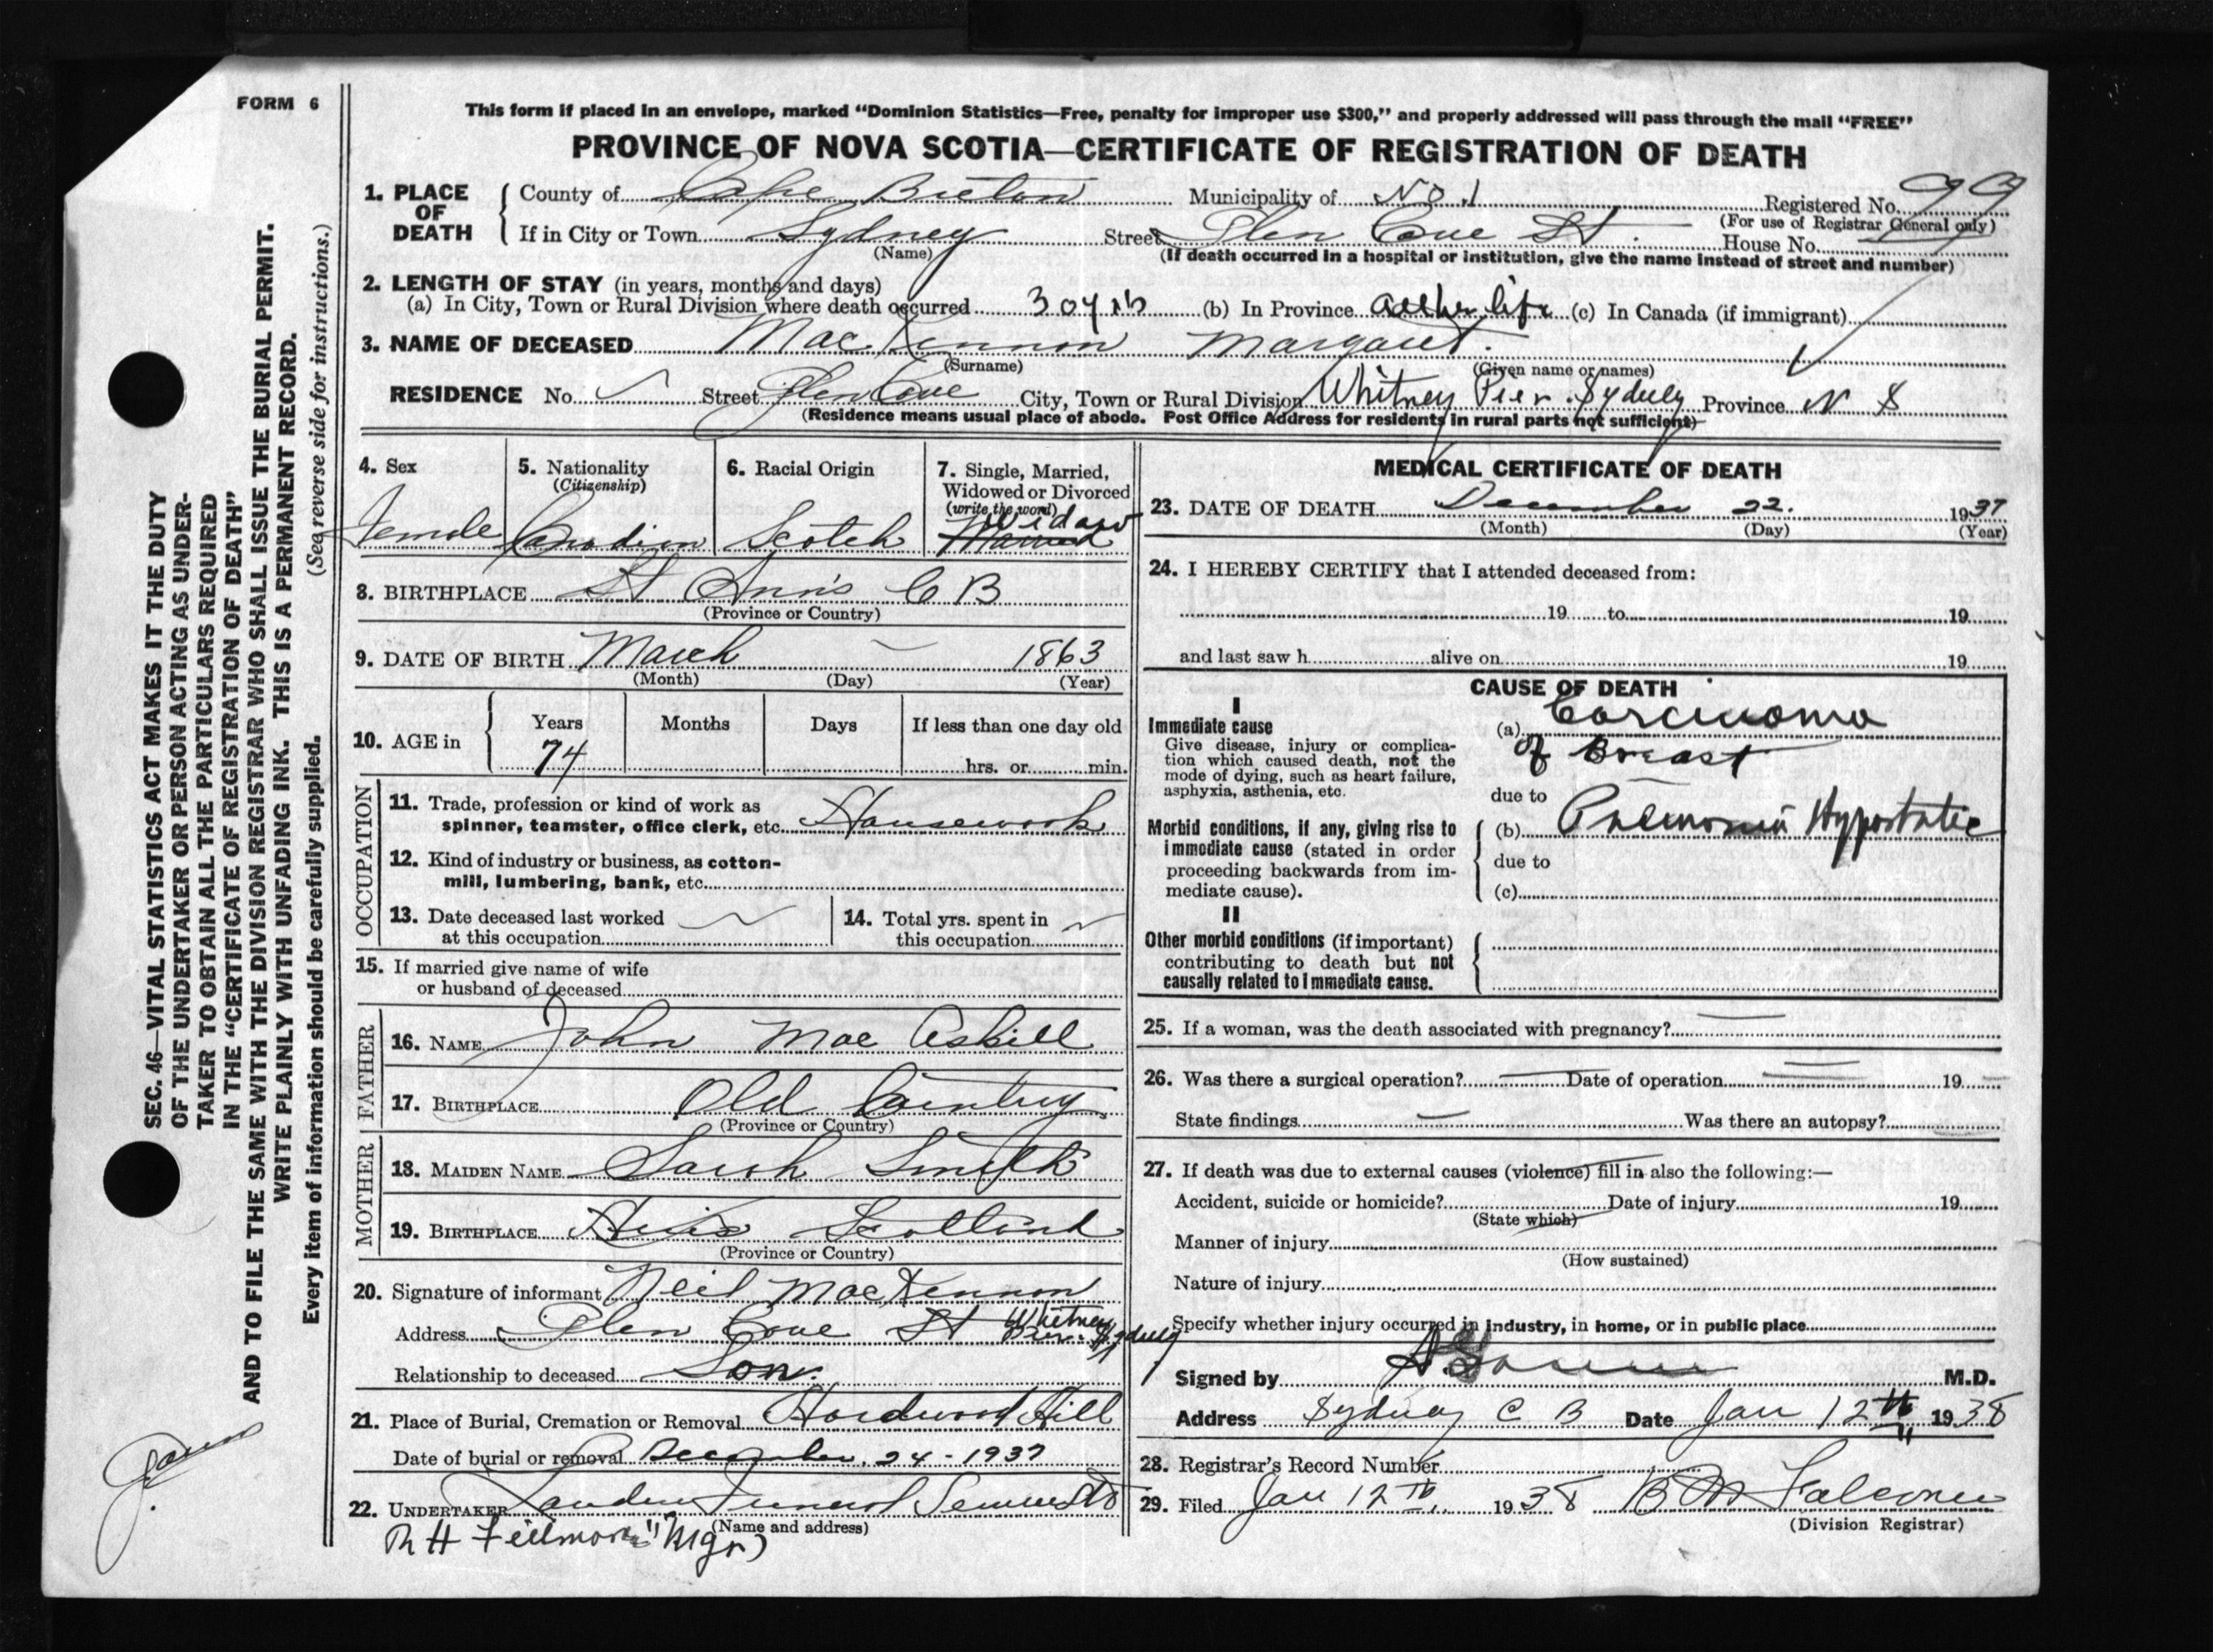 FORM 6
This form if placed in an envelope, marked "Dominion Statistics—Free, penalty for improper use $300," and properly addressed will pass through the mail "FREE"
PROVINCE OF NOVA SCOTIA—CERTIFICATE OF REGISTRATION OF DEATH
1. PLACE OF DEATH
County of Cape Breton Municipality of No. 1 Registered No. 99
(For use of Registrar General only)
If in City or Town Sydney Street Glen Cove St. House No.
(Name)
(If death occurred in a hospital or institution, give the name instead of street and number)
2. LENGTH OF STAY (in years, months and days)
(a) In City, Town or Rural Division where death occurred 30 yrs (b) In Province all her life (c) In Canada (if immigrant)
3. NAME OF DECEASED MacKinnon Margaret.
(Surname) (Given name or names)
RESIDENCE No. Street Glen Cove City, Town or Rural Division Whitney Pier. Sydney Province N S
(Residence means usual place of abode. Post Office Address for residents in rural parts not sufficient)
4. Sex
Female
5. Nationality
(Citizenship)
Canadian
6. Racial Origin
Scotch
7. Single, Married,
Widowed or Divorced
(write the word)
Widow
Married
8. BIRTHPLACE St Ann's C B
(Province or Country)
9. DATE OF BIRTH March 1863
(Month) (Day) (Year)
10. AGE in
Years Months Days If less than one day old
74 hrs. or min.
OCCUPATION
11. Trade, profession or kind of work as
spinner, teamster, office clerk, etc. Housework
12. Kind of industry or business, as cotton-
mill, lumbering, bank, etc.
13. Date deceased last worked
at this occupation
14. Total yrs. spent in
this occupation
15. If married give name of wife
or husband of deceased
FATHER
16. NAME John MacAskill
17. BIRTHPLACE Old Country
(Province or Country)
MOTHER
18. MAIDEN NAME Sarah Smith
19. BIRTHPLACE Scotland
(Province or Country)
20. Signature of informant Neil MacKinnon
Address Glen Cove St Whitney Pier. Sydney
Relationship to deceased Son.
21. Place of Burial, Cremation or Removal Hardwood Hill
Date of burial or removal December. 24 - 1937
22. UNDERTAKER Funeral
(Name and address)
R H Fillmore "Mgr)
MEDICAL CERTIFICATE OF DEATH
23. DATE OF DEATH December 22. 1937
(Month) (Day) (Year)
24. I HEREBY CERTIFY that I attended deceased from:
19 to 19
and last saw h alive on 19
CAUSE OF DEATH
I
Immediate cause
Give disease, injury or complica-
tion which caused death, not the
mode of dying, such as heart failure,
asphyxia, asthenia, etc.
(a) Carcinoma
of Breast
due to
Morbid conditions, if any, giving rise to
immediate cause (stated in order
proceeding backwards from im-
mediate cause).
(b) Pneumonia Hypostatic
due to
(c)
II
Other morbid conditions (if important)
contributing to death but not
causally related to immediate cause.
25. If a woman, was the death associated with pregnancy?
26. Was there a surgical operation? Date of operation 19
State findings Was there an autopsy?
27. If death was due to external causes (violence) fill in also the following:—
Accident, suicide or homicide? Date of injury 19
(State which)
Manner of injury
(How sustained)
Nature of injury
Specify whether injury occurred in industry, in home, or in public place
Signed by M.D.
Address Sydney C B Date Jan 12th 1938
28. Registrar's Record Number
29. Filed Jan 12th, 1938 B M Falconer
(Division Registrar)
SEC. 46—VITAL STATISTICS ACT MAKES IT THE DUTY
OF THE UNDERTAKER OR PERSON ACTING AS UNDER-
TAKER TO OBTAIN ALL THE PARTICULARS REQUIRED
IN THE "CERTIFICATE OF REGISTRATION OF DEATH"
AND TO FILE THE SAME WITH THE DIVISION REGISTRAR WHO SHALL ISSUE THE BURIAL PERMIT.
WRITE PLAINLY WITH UNFADING INK. THIS IS A PERMANENT RECORD.
Every item of information should be carefully supplied.
(See reverse side for instructions.)